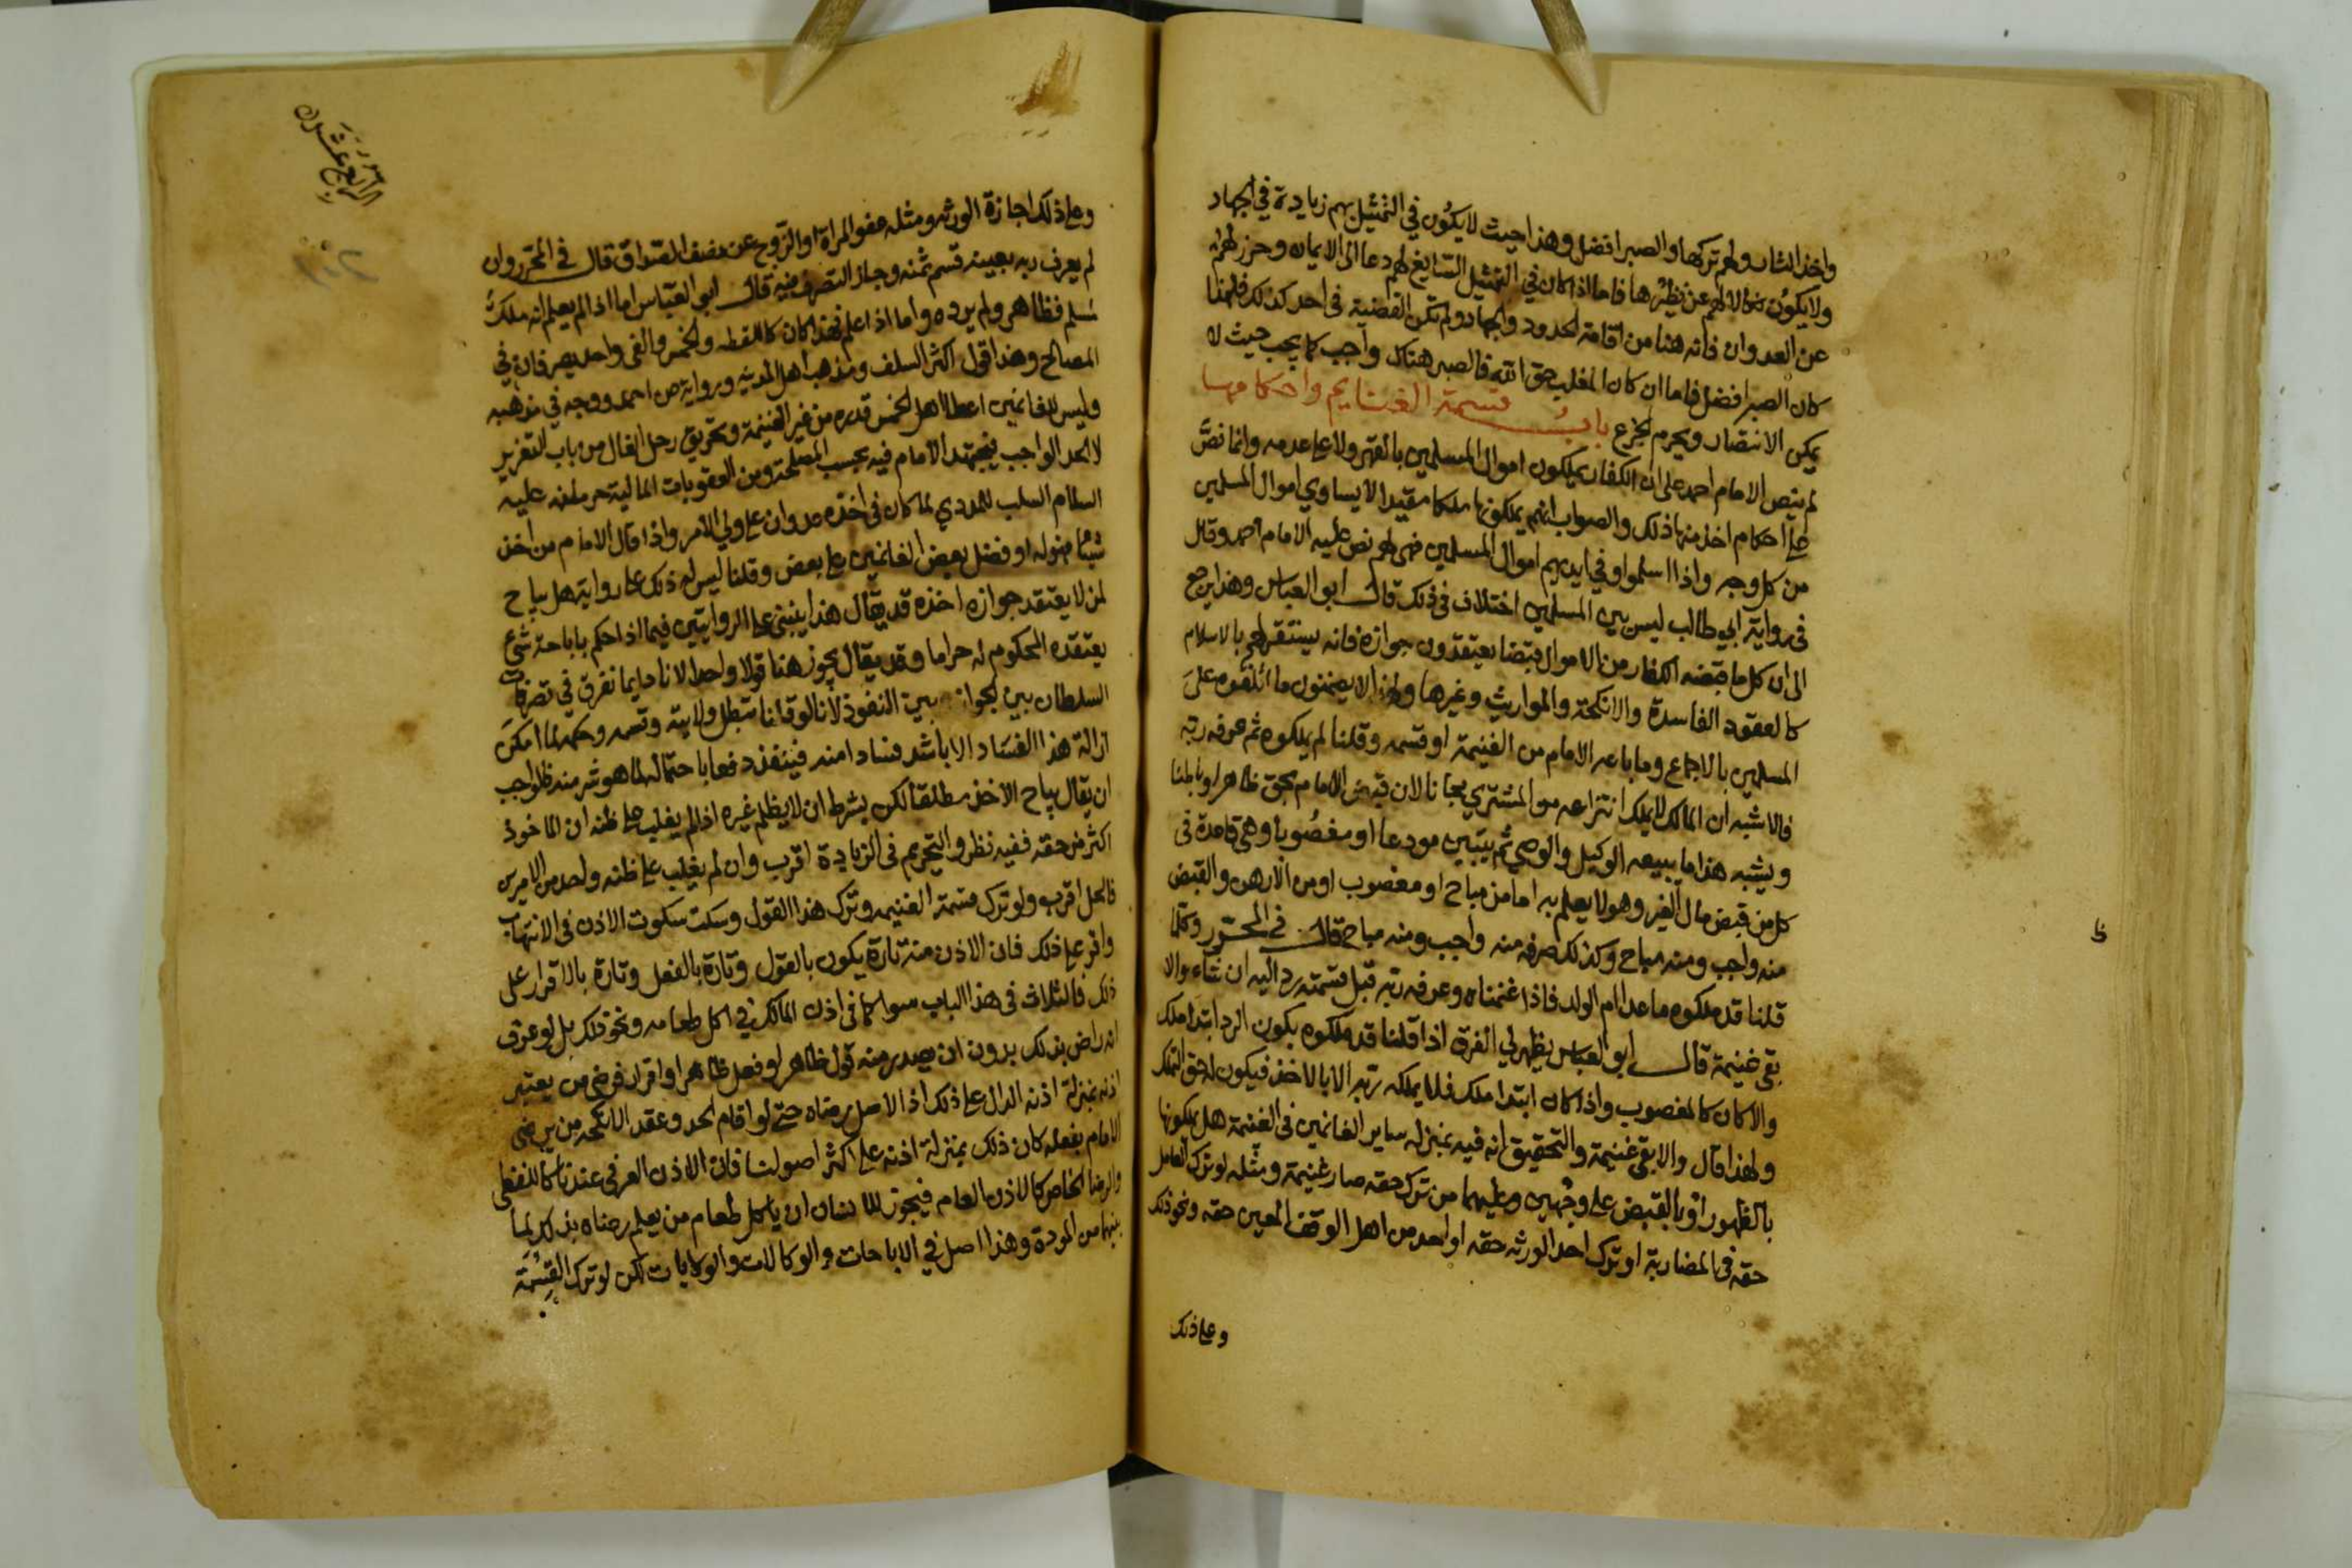 واخذ الثار ولهم تركها والصبر افضل وهذا حيث لا يكون في التمثيل بهم زيادة في الجهاد
ولا يكون نكالا لهم عن نظيرها فاما اذا كان في التمثيل السايغ لهم دعا الى الايمان وحرز لهم
عن العدوان فانه هنا من اقامة الحدود والجهاد ولم تكن القضية في احد كذلك فلهذا
كان الصبر افضل فاما ان كان المغلب حق الله فالصبر هناك واجب كما يجب حيث لا
يمكن الانتصار ويحرم الجزع باب قسمة الغنايم واحكامها
لم ينص الامام احمد على ان الكفار يملكون اموال المسلمين بالقهر ولا على عدمه وانما نص
على احكام اخذ منها ذلك والصواب انهم يملكونها ملكا مقيدا لا يساوي اموال المسلمين
من كل وجه واذا اسلموا وفي ايديهم اموال المسلمين فهي لهم نص عليه الامام احمد وقال
في رواية ابي طالب ليس بين المسلمين اختلاف في ذلك قال ابو العباس وهذا يرجع
الى ان كل ما قبضه الكفار من الاموال قبضا يعتقدون جوازه فانه يستقر لهم بالاسلام
كالعقود الفاسدة والانكحة والمواريث وغيرها ولهذا لا يضمنون ما اتلفوه على
المسلمين بالاجماع وما باعه الامام من الغنيمة او قسمه وقلنا لم يملكوه ثم عرفه ربه
فالاشبه ان المالك لا يملك انتزاعه من المشتري مجانا لان قبض الامام بحق ظاهرا وباطنا
ويشبه هذا ما يبيعه الوكيل والوصي ثم يتبين مودعا او مغصوبا وهي قاعدة في
كل من قبض مال الغير وهو لا يعلم به اما من مباح او مغصوب او من الارهن والقبض
منه واجب ومنه مباح وكذلك صرفه منه واجب ومنه مباح قال في المحرر وكلما
قلنا قد ملكوه ما عدا ام الولد فاذا غنمناه وعرفه ربه قبل قسمته رد اليه ان شاء والا
بقي غنيمة قال ابو العباس يظهر لي الفرق اذا قلنا قد ملكوه يكون الرد ابتدا ملك
والا كان كالمغصوب واذا كان ابتدا ملك فلا يملكه ربه الا بالاخذ فيكون له حق التملك
ولهذا قال والا بقي غنيمة والتحقيق انه فيه بمنزله ساير الغانمين في الغنيمة هل يملكونها
بالظهور او بالقبض على وجهين وعليهما من ترك حقه صار غنيمة ومثله لو ترك العامل
حقه في المضاربة او ترك احد الورثه حقه او احد من اهل الوقف المعين حقه ونحو ذلك
وعلى ذلك
ظ
الرابع عشر
وعلى ذلك اجازة الورثه ومثله عفو المراة او الزوج عن نصف الصداق قال في المحرر وان
لم يعرف ربه بعينه قسم ثمنه وجاز التصرف فيه قال ابو العباس اما اذا لم يعلم انه ملك
مسلم فظاهر ولم يرده واما اذا علم فهذا كان كاللقطه والخمس والفي واحد يصرفان في
المصالح وهذا قول اكثر السلف ومذهب اهل المدينه ورواية عن احمد ووجه في مذهبه
وليس للغانمين اعطا اهل الخمس قدره من غير الغنيمة وتحريق رحل الغال من باب التعزير
لا الحد الواجب فيجتهد الامام فيه بحسب المصلحة ومن العقوبات المالية حرمانه عليه
السلام السلب للمددي لما كان في اخذه عدوان على ولي الامر واذا قال الامام من اخذ
شيئا فهو له او فضل بعض الغانمين على بعض وقلنا ليس له ذلك على رواية هل يباح
لمن لا يعتقد جوازه اخذه قد يقال هذا ينبني على الروايتين فيما اذا حكم باباحة شئ
يعتقده المحكوم له حراما وقد يقال يجوز هنا قولا واحدا لانا دايما نفرق في تصرفات
السلطان بين الجواز وبين النفوذ لانا لو قلنا تبطل ولايته وقسمه وحكمه لما امكن
ازالة هذا الفساد الا باشد فسادا منه فينفذ دفعا باحتماله لما هو شر منه ظلواجب
ان يقال يباح الاخذ مطلقا لكن بشرط ان لا يظلم غيره اذا لم يغلب على ظنه ان الماخوذ
اكثر من حقه ففيه نظر والتحريم في الزيادة اقرب وان لم يغلب على ظنه واحد من الامرين
فالحل اقرب ولو ترك قسمة الغنيمه وترك هذا القول وسكت سكوت الاذن في الانتهاب
واقر على ذلك فان الاذن منه تارة يكون بالقول وتارة بالفعل وتارة بالاقرار على
ذلك فالثلاث في هذا الباب سوا كما في اذن المالك في اكل طعامه ونحو ذلك بل لو عرف
انه راض بذلك بدون ان يصدر منه قول ظاهر او فعل ظاهر او اقرار فرضى من يعتبر
اذنه بمنزلة اذنه الدال على ذلك اذ الاصل رضاه حتى لو اقام الحد وعقد الانكحه من يرضى
الامام بفعله كان ذلك بمنزلة اذنه على اكثر اصولنا فان الاذن العرفي عندنا كاللفظي
والرضا الخاص كالاذن العام فيجوز للانسان ان ياكل طعام من يعلم رضاه بذلك لما
بينهما من المودة وهذا اصل في الاباحات والوكالات والولايات لكن لو ترك القسمة